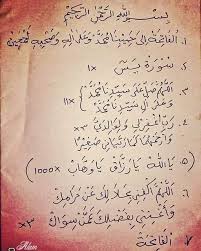 بسم الله الرحمن الرحيم
١. الفاتحة إلى حبيبنا محمد وعلى آله وصحبه أجمعين
٢. سورة يس ×١
٣. اللهم صل على سيدنا محمد
وعلى آل سيدنا محمد ×١١
٤. رب اغفر لي ولوالدي
وارحمهما كما ربياني صغيرا ×٣
٥. (يا الله يا رزاق يا وهاب) ×1000
٦. اللهم اكفني بحلالك عن حرامك
وأغنني بفضلك عمن سواك ×٣
٧. الفاتحة
Alam